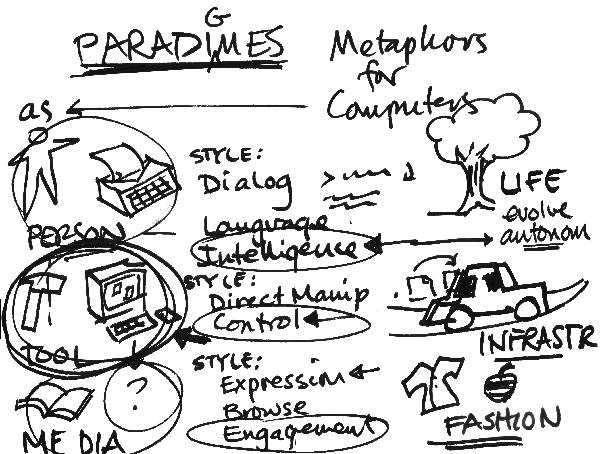 G
PARADIMES
Metaphors
for
Computers
as
STYLE:
Dialog
Language
Intelligence
PERSON
LIFE
evolve
autonom
STYLE:
Direct Manip
Control
TOOL
INFRASTR
STYLE:
Expression
Browse
Engagement
?
MEDIA
FASHION